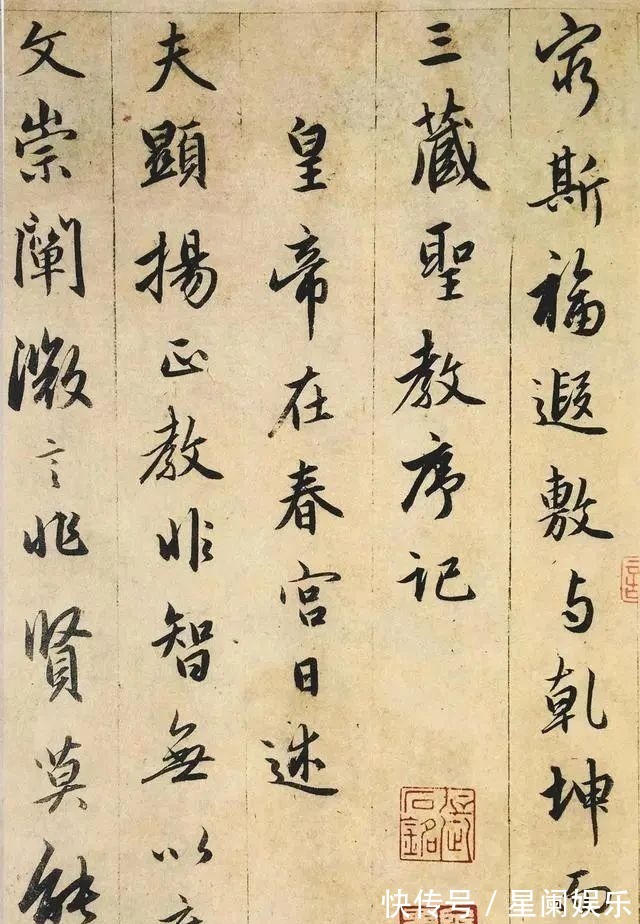 窮斯福遐敷与乾坤而
三藏聖教序記
皇帝在春宮日述
夫顯揚正教非智無以廣
文崇闡微言非賢莫能
快传号 / 星阑娱乐